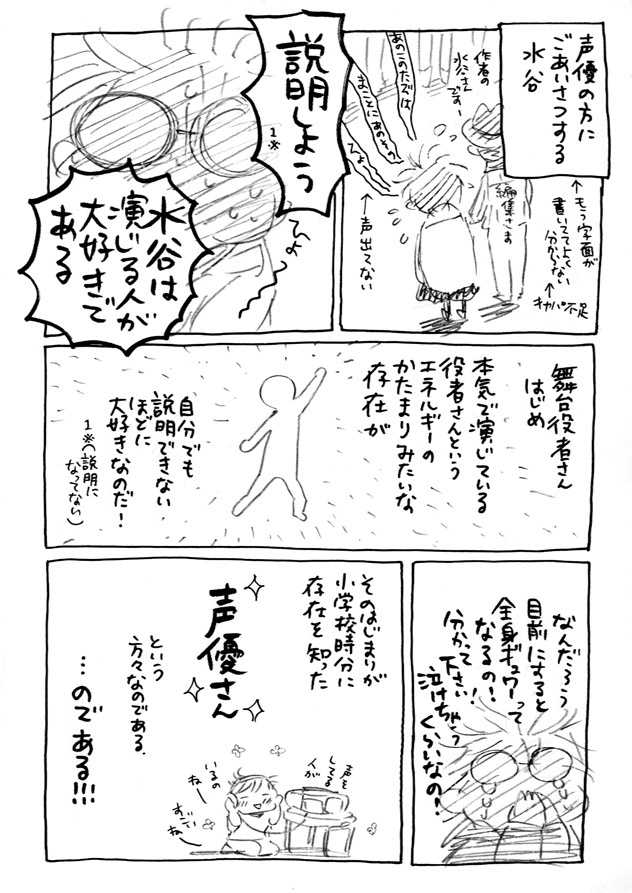 声優の方に
ごあいさつする
水谷
作者の
水谷さん
です—
あのこのたびは
まことにあのもの
ひょ
編集さま
↑もう字面が
書いててよく
分からない
↑オカバ不足
↑声出てない
説明しよう
1※
水谷は
演じる人が
大好きで
ある
ひょ
舞台役者さん
はじめ
本気で演じている
役者さんという
エネルギーの
かたまりみたいな
存在が
自分でも
説明できない
ほどに
大好きなのだ!
1※(説明に
なってない)
なんだろう
目前にすると
全身ギュワーって
なるの!
分かって下さい
泣けちゃう
くらいなの!
そのはじまりが
小学校時分に
存在を知った
声優さん
という
方々なのである.
…のである!!!
声を
してる
人が
いるの
ねー
すごい
ねー